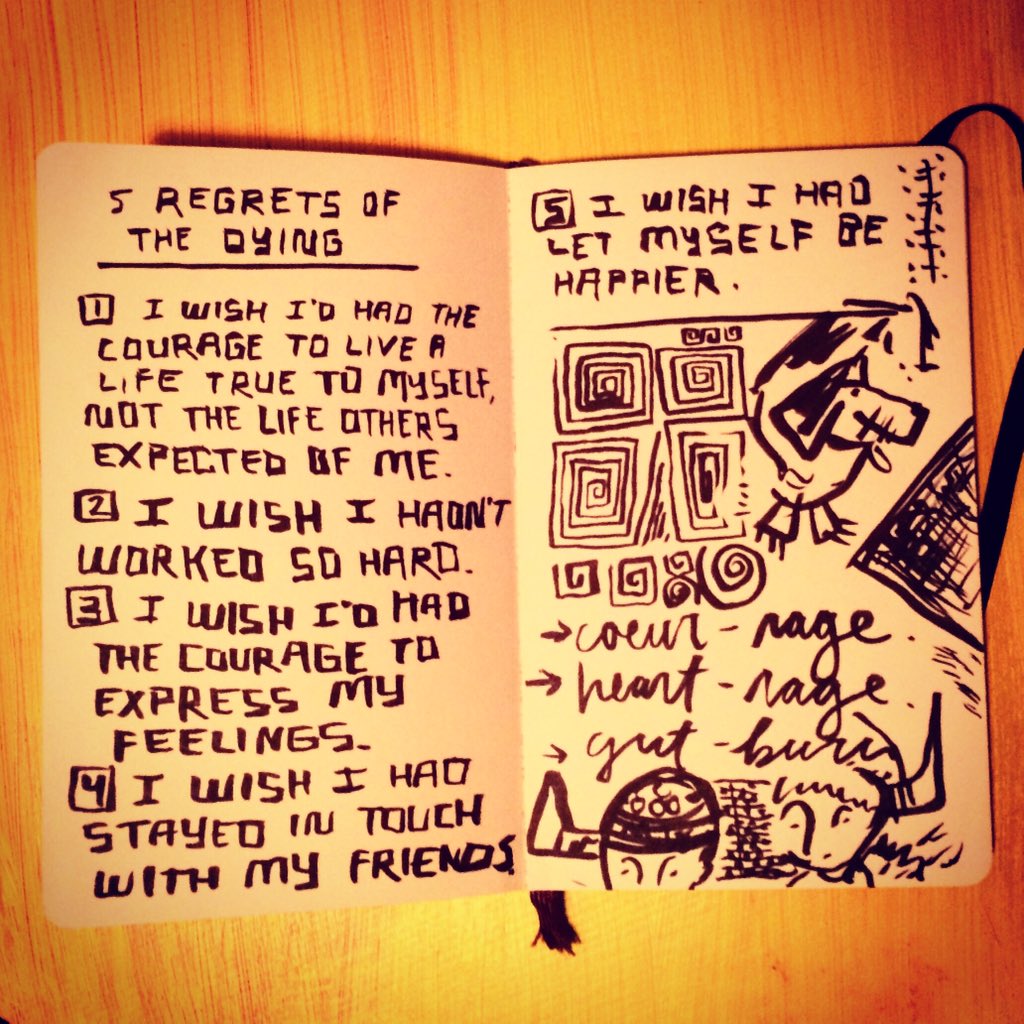 5 REGRETS OF
THE DYING
1 I WISH I'D HAD THE
COURAGE TO LIVE A
LIFE TRUE TO MYSELF,
NOT THE LIFE OTHERS
EXPECTED OF ME.
2 I WISH I HADN'T
WORKED SO HARD.
3 I WISH I'D HAD
THE COURAGE TO
EXPRESS MY
FEELINGS.
4 I WISH I HAD
STAYED IN TOUCH
WITH MY FRIENDS.
5 I WISH I HAD
LET MYSELF BE
HAPPIER.
→ coeur-rage.
→ heart-rage.
→ gut-burn